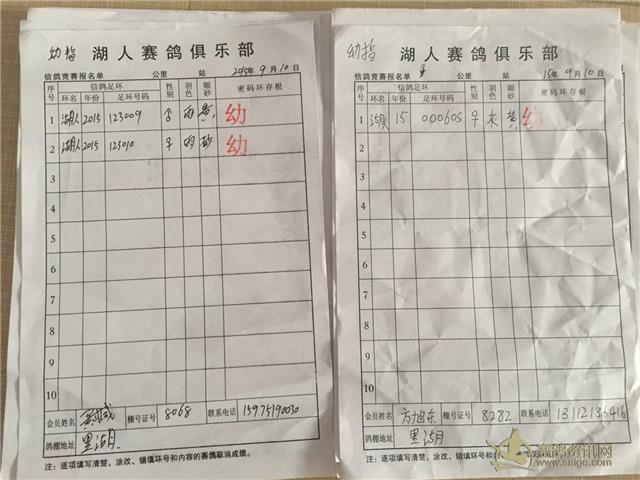 幼指 湖人赛鸽俱乐部
信鸽竞赛报名单 公里 站 2015年9月10日
序号 信鸽足环 性别 羽色 眼砂 密码环存根
环名 年份 足环号码
1 湖人 2015 123009 ♂ 雨 黄 幼
2 湖人 2015 123010 ♀ 雨 砂 幼
3
4
5
6
7
8
9
10
会员姓名 棚号证号 8068 联系电话 15975190030
鸽棚地址 里湖
注：逐项填写清楚，涂改、错填环号和内容的赛鸽取消成绩。
幼指 湖人赛鸽俱乐部
信鸽竞赛报名单 公里 站 15年9月10日
序号 信鸽足环 性别 羽色 眼砂 密码环存根
环名 年份 足环号码
1 湖 15 000605 ♀ 灰 黄
2
3
4
5
6
7
8
9
10
会员姓名 方旭东 棚号证号 8282 联系电话 13112135416
鸽棚地址 里湖
注：逐项填写清楚，涂改、错填环号和内容的赛鸽取消成绩。
赛鸽资讯网
www.saige.com